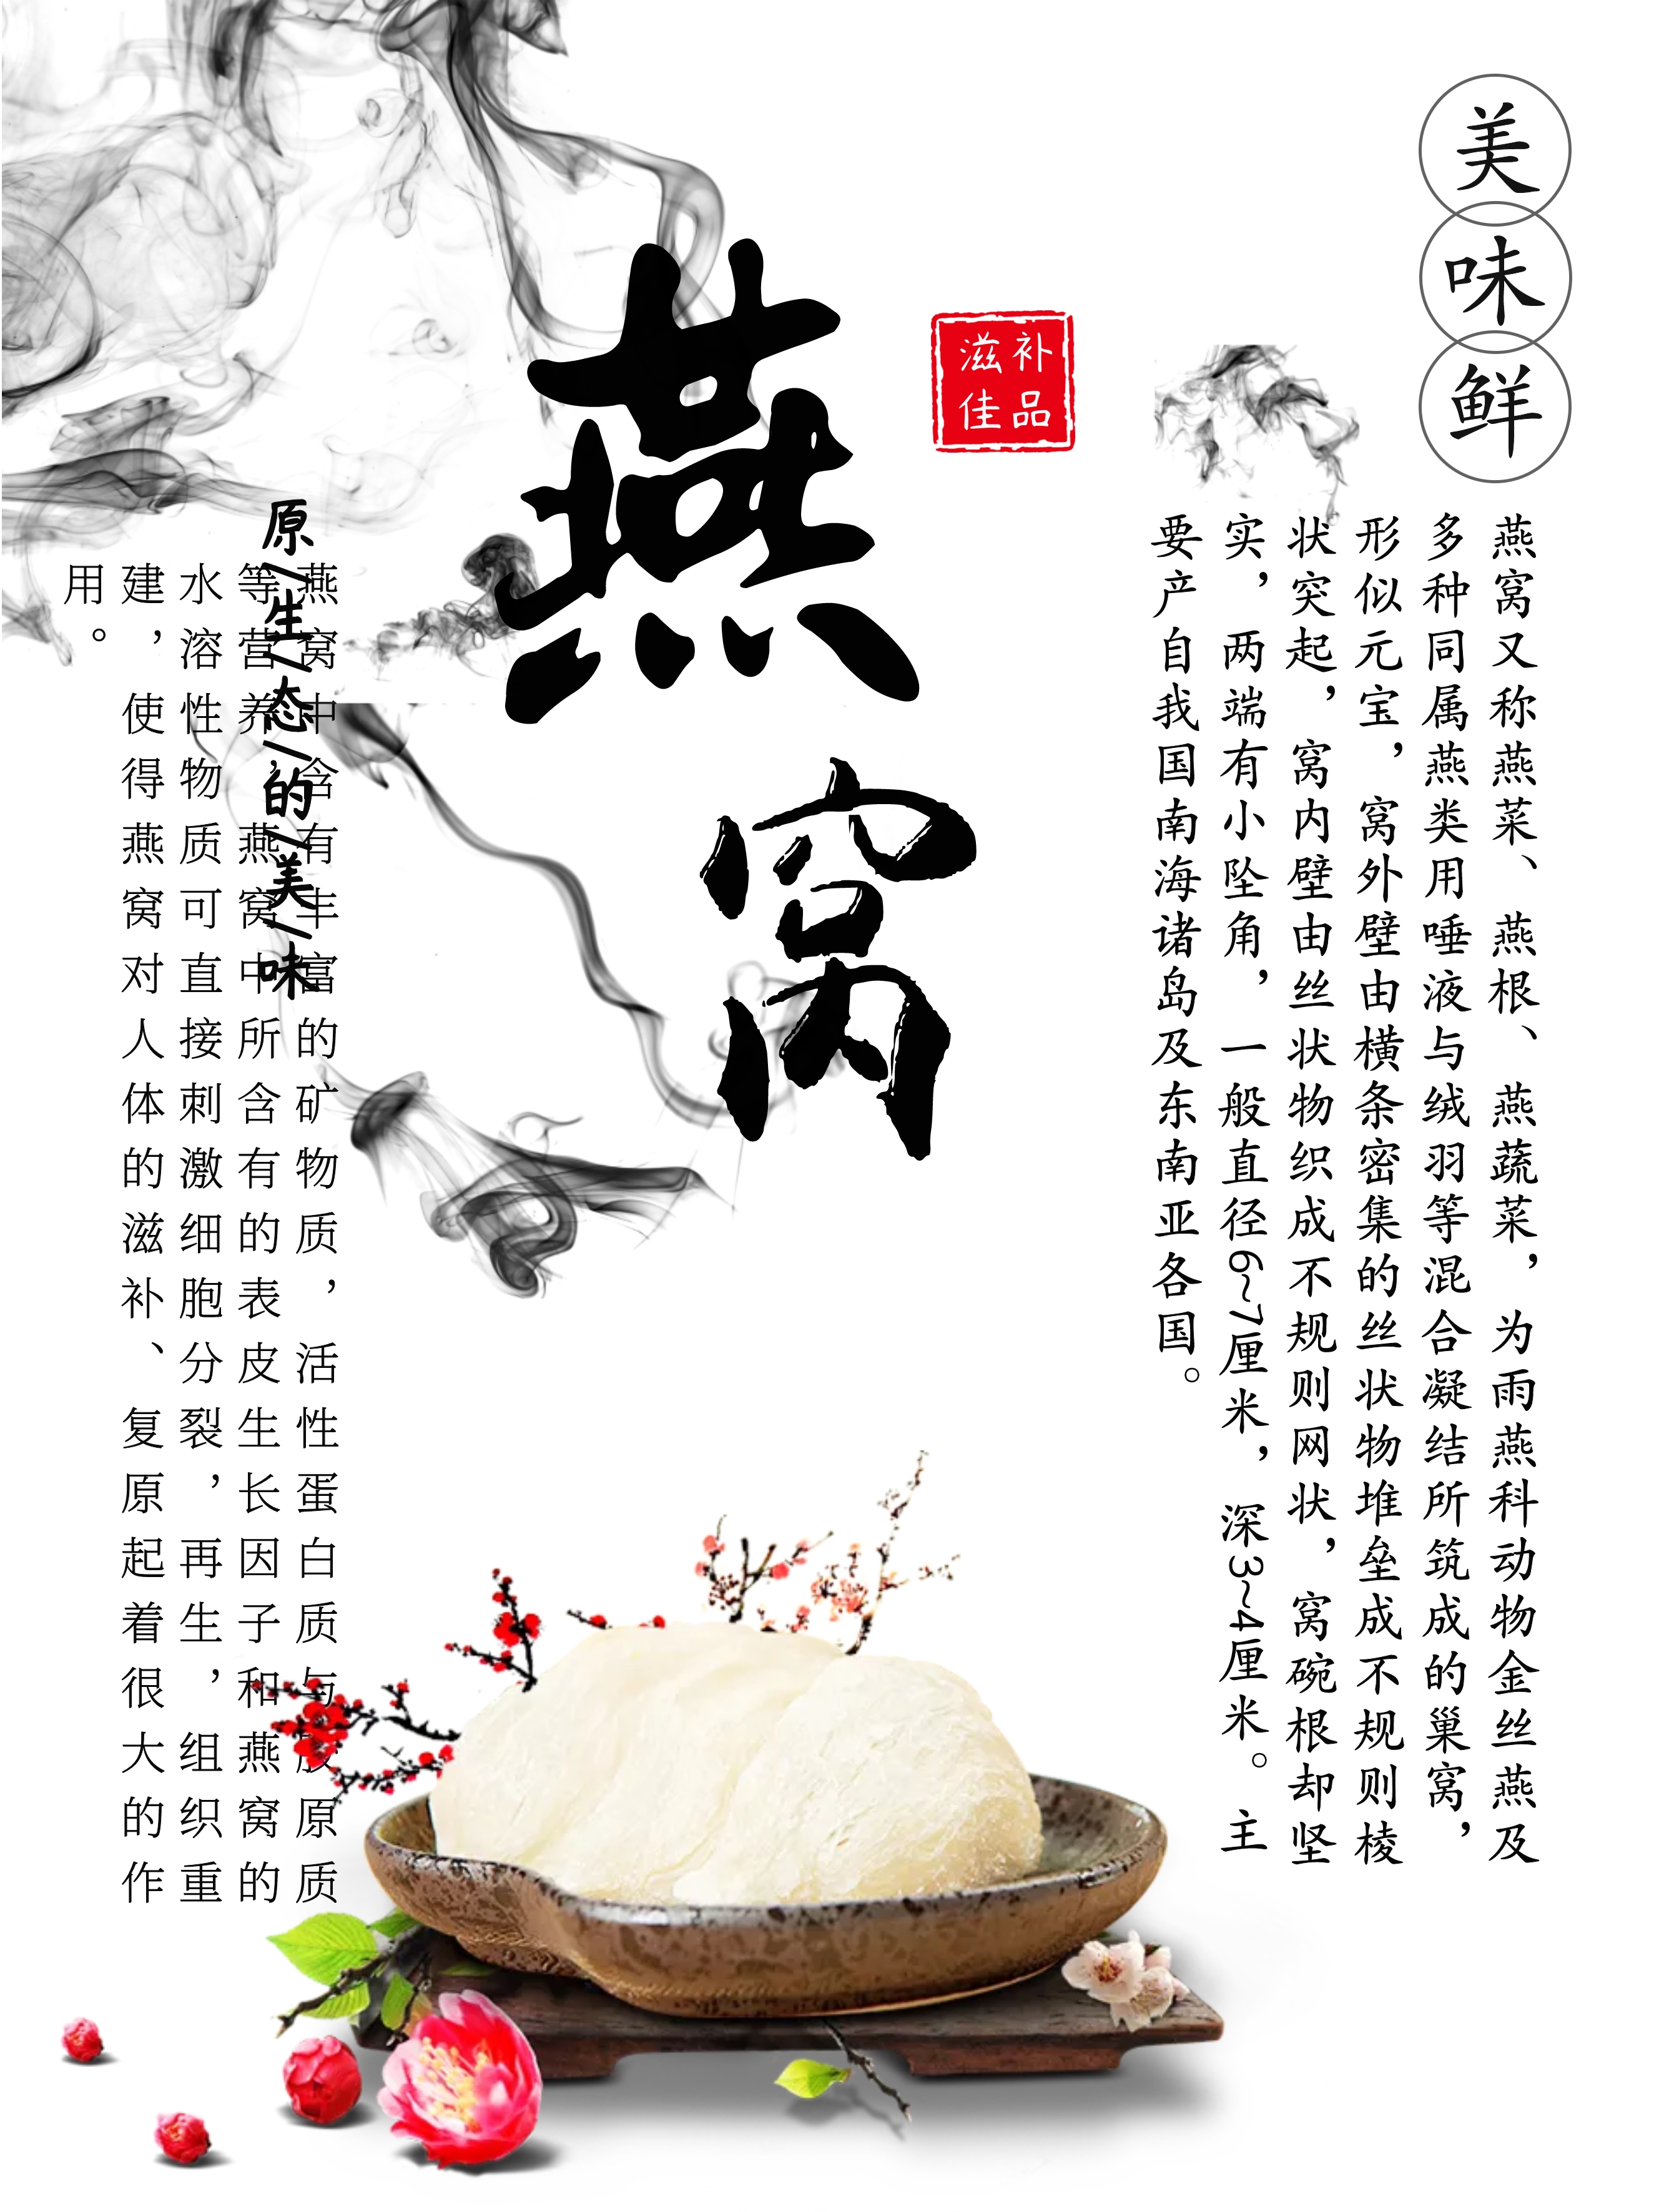 美味鲜
燕窝又称燕菜、燕根、燕蔬菜，为雨燕科动物金丝燕及
多种同属燕类用唾液与绒羽等混合凝结所筑成的巢窝，
形似元宝，窝外壁由横条密集的丝状物堆垒成不规则棱
状突起，窝内壁由丝状物织成不规则网状，窝碗根却坚
实，两端有小坠角，一般直径6~7厘米，深3~4厘米。主
要产自我国南海诸岛及东南亚各国。
滋补
佳品
燕窝
原/生/态/的/美/味
燕窝中含有丰富的矿物质，活性蛋白质与胶原质
等营养，燕窝中所含有的表皮生长因子和燕窝的
水溶性物质可直接刺激细胞分裂，再生，组织重
建，使得燕窝对人体的滋补、复原起着很大的作
用。